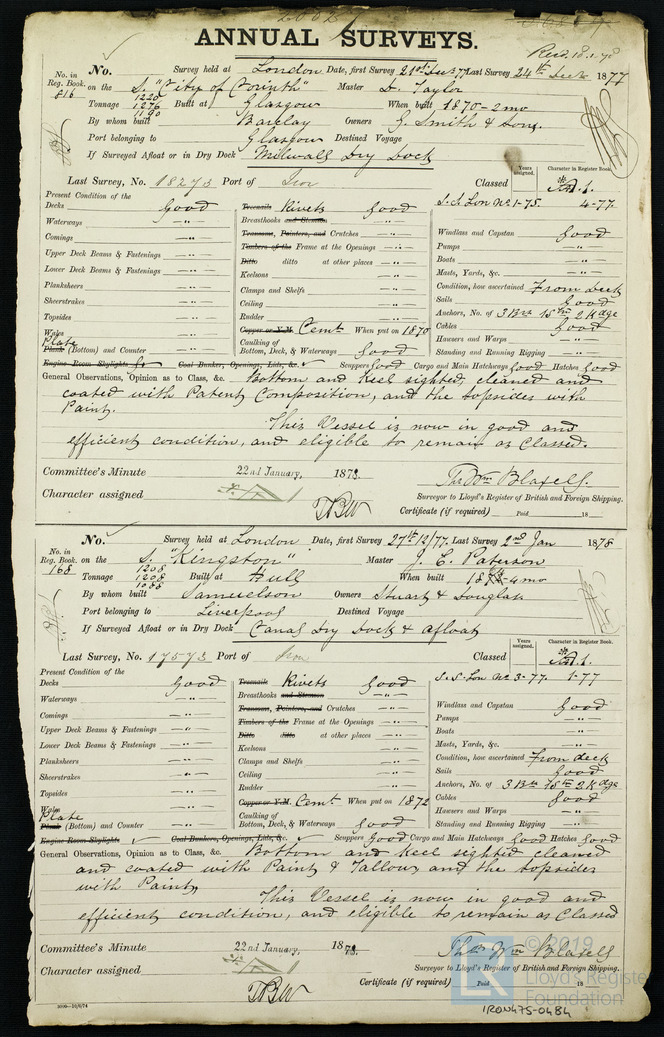 2082
ANNUAL SURVEYS.
Recd 18.1.78
No. in Reg. Book. 816
No. Survey held at London Date, first Survey 21st Decr 77 Last Survey 24th Decr 1877
on the S. "City of Corinth" Master D. Taylor
Tonnage 1220 1276 1190 Built at Glasgow When built 1870-2mo
By whom built Barclay Owners G. Smith & Sons.
Port belonging to Glasgow Destined Voyage
If Surveyed Afloat or in Dry Dock Millwall Dry Dock
Last Survey, No. 18273 Port of Iron Classed
Years assigned. Character in Register Book.
A.1.
S.S. Lon No 1-75 4-77
Present Condition of the
Decks Good
Waterways -"-
Comings -"-
Upper Deck Beams & Fastenings -"-
Lower Deck Beams & Fastenings -"-
Planksheers -"-
Sheerstrakes -"-
Topsides -"-
Wales -"-
Plate
Plank (Bottom) and Counter -"-
Treenails Rivets Good
Breasthooks and Stemson -"-
Transoms, Pointers, and Crutches -"-
Timbers of the Frame at the Openings -"-
Ditto ditto at other places -"-
Keelsons -"-
Clamps and Shelfs -"-
Ceiling -"-
Rudder -"-
Copper or Y.M. Cemt When put on 1870
Caulking of Bottom, Deck, & Waterways Good
Windlass and Capstan Good
Pumps -"-
Boats -"-
Masts, Yards, &c. -"-
Condition, how ascertained From deck
Sails Good
Anchors, No. of 3 Br 1 St 2 Kdge
Cables Good
Hawsers and Warps -"-
Standing and Running Rigging -"-
Engine Room Skylights Coal Bunker, Openings, Lids, &c. Scuppers Good Cargo and Main Hatchways Good Hatches Good
General Observations, Opinion as to Class, &c. Bottom and Keel sighted, cleaned and
coated with Patent Composition, and the topsides with
Paint.
This Vessel is now in good and
efficient condition, and eligible to remain as Classed.
Committee's Minute 22nd January, 1878.
Character assigned
Thos Wm Blaxell.
Surveyor to Lloyd's Register of British and Foreign Shipping.
TBW
Certificate (if required) Paid 18
No. in Reg. Book. 168
No. Survey held at London Date, first Survey 27th 12/77 Last Survey 2nd Jan 1878
on the S. "Kingston" Master J. C. Paterson
Tonnage 1208 1208 1088 Built at Hull When built 1872-4mo
By whom built Samuelson Owners Stuart & Douglas
Port belonging to Liverpool Destined Voyage
If Surveyed Afloat or in Dry Dock Canal Dry Dock & Afloat
Last Survey, No. 17573 Port of Iron Classed
Years assigned. Character in Register Book.
A.1.
S.S. Lon No 3-77. 1-77
Present Condition of the
Decks Good
Waterways -"-
Comings -"-
Upper Deck Beams & Fastenings -"-
Lower Deck Beams & Fastenings -"-
Planksheers -"-
Sheerstrakes -"-
Topsides -"-
Wales -"-
Plate
Plank (Bottom) and Counter -"-
Treenails Rivets Good
Breasthooks and Stemson -"-
Transoms, Pointers, and Crutches -"-
Timbers of the Frame at the Openings -"-
Ditto ditto at other places -"-
Keelsons -"-
Clamps and Shelfs -"-
Ceiling -"-
Rudder -"-
Copper or Y.M. Cemt When put on 1872
Caulking of Bottom, Deck, & Waterways Good
Windlass and Capstan Good
Pumps -"-
Boats -"-
Masts, Yards, &c. -"-
Condition, how ascertained From deck
Sails Good
Anchors, No. of 3 Br 1 St 2 Kdge
Cables Good
Hawsers and Warps -"-
Standing and Running Rigging -"-
Engine Room Skylights Coal Bunkers, Openings, Lids, &c. Scuppers Good Cargo and Main Hatchways Good Hatches Good
General Observations, Opinion as to Class, &c. Bottom and Keel sighted cleaned
and coated with Paint & Tallow and the topsides
with Paint,
This Vessel is now in good and
efficient condition, and eligible to remain as Classed
Committee's Minute 22nd January, 1878.
Character assigned
Thos Wm Blaxell
Surveyor to Lloyd's Register of British and Foreign Shipping.
TBW
Certificate (if required) Paid 18
3000-10/6/74
IRON475-0484
© 2019
Lloyd's Register
Foundation